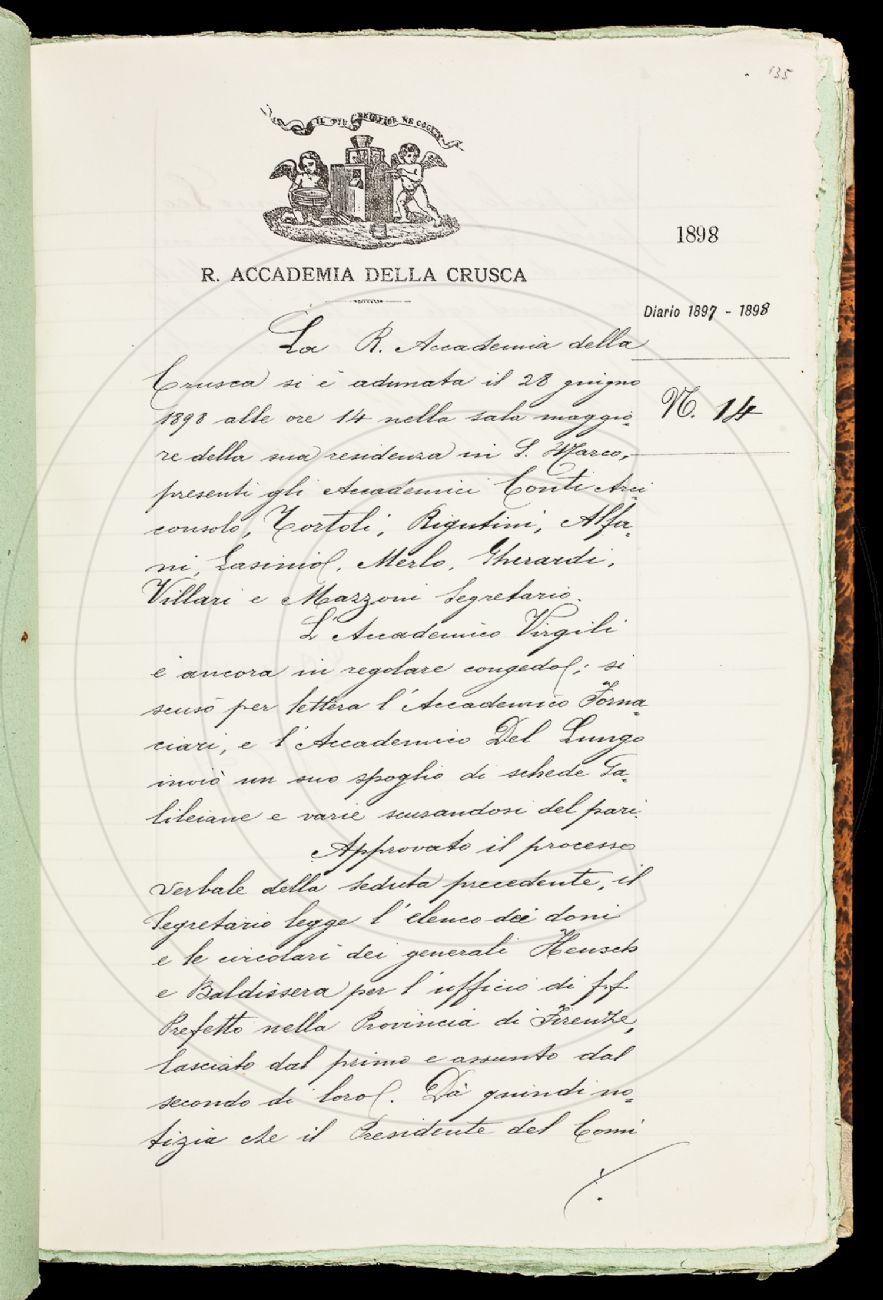 135
IL PIÙ BEL FIOR NE COGLIE
1898
R. ACCADEMIA DELLA CRUSCA
Diario 1897 - 1898
N. 14
La R. Accademia della
Crusca si è adunata il 28 giugno
1898 alle ore 14 nella sala maggio=
re della sua residenza in S. Marco,
presenti gli Accademici Conti Arci
consolo, Tortoli, Rigutini, Alfa=
ni, Lasinio, Merlo, Gherardi,
Villari e Mazzoni Segretario.
L'Accademico Virgili
è ancora in regolare congedo; si
scusò per lettera l'Accademico Forna
ciari, e l'Accademico Del Lungo
inviò un suo spoglio di schede Ga=
lileiane e varie scusandosi del pari.
Approvato il processo
verbale della seduta precedente, il
Segretario legge l'elenco dei doni
e le circolari dei generali Heusch
e Baldissera per l'ufficio di ff
Prefetto nella Provincia di Firenze,
lasciato dal primo e assunto dal
secondo di loro. Dà quindi no=
tizia che il Presidente del Comi
./.